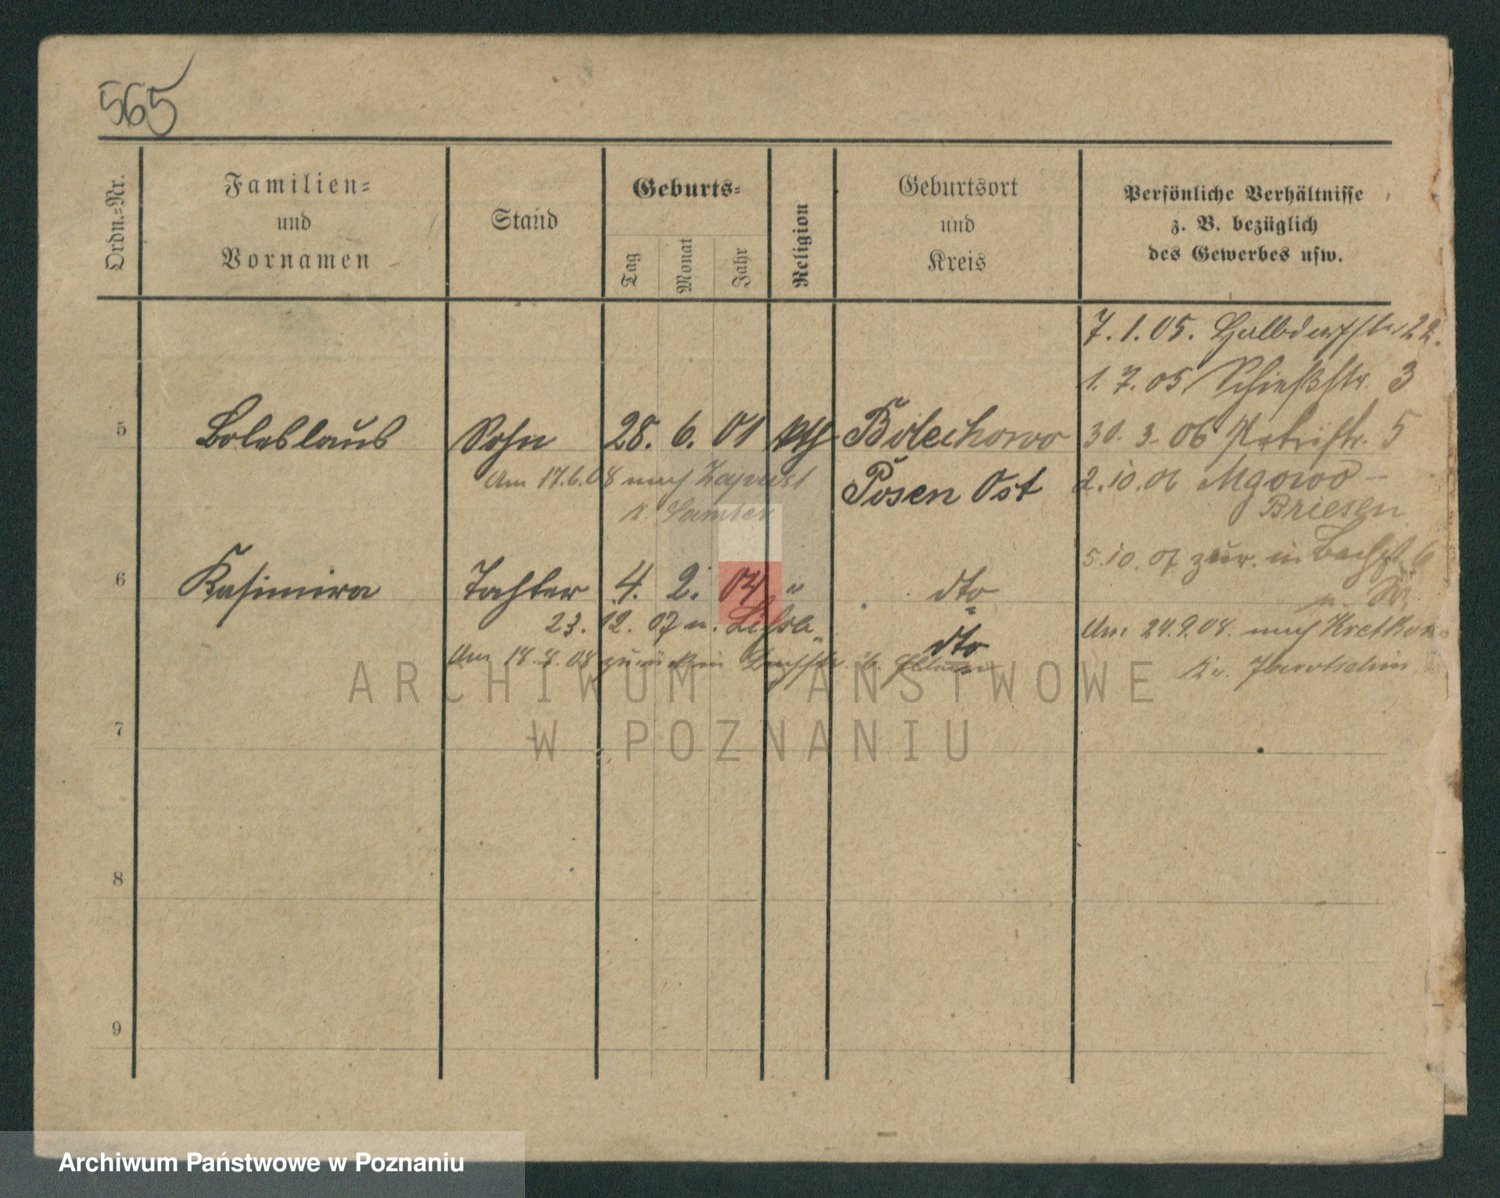 565
Ordn.-Nr.
Familien-
und
Vornamen
Stand
Geburts-
Tag
Monat
Jahr
Religion
Geburtsort
und
Kreis
Persönliche Verhältnisse
z. B. bezüglich
des Gewerbes usw.
7.1.05. Halbdorfstr. 22.
1.7.05 Schießstr. 3
5 Boleslaus Sohn 28. 6. 01 kth Bolechowo 30.3.06 Petristr. 5
Am 17.6.08 nach
K. Samter
Posen Ost
2.10.06 Mgowo -
Briesen
5.10.07 zur. in 6
6 Kasimira Tochter 4. 2. 04 " dto
23.12.07 n.
dto
Am 24.9.08. nach
Am 18.8.08 zurück
7
8
9
ARCHIWUM PAŃSTWOWE
W POZNANIU
Archiwum Państwowe w Poznaniu